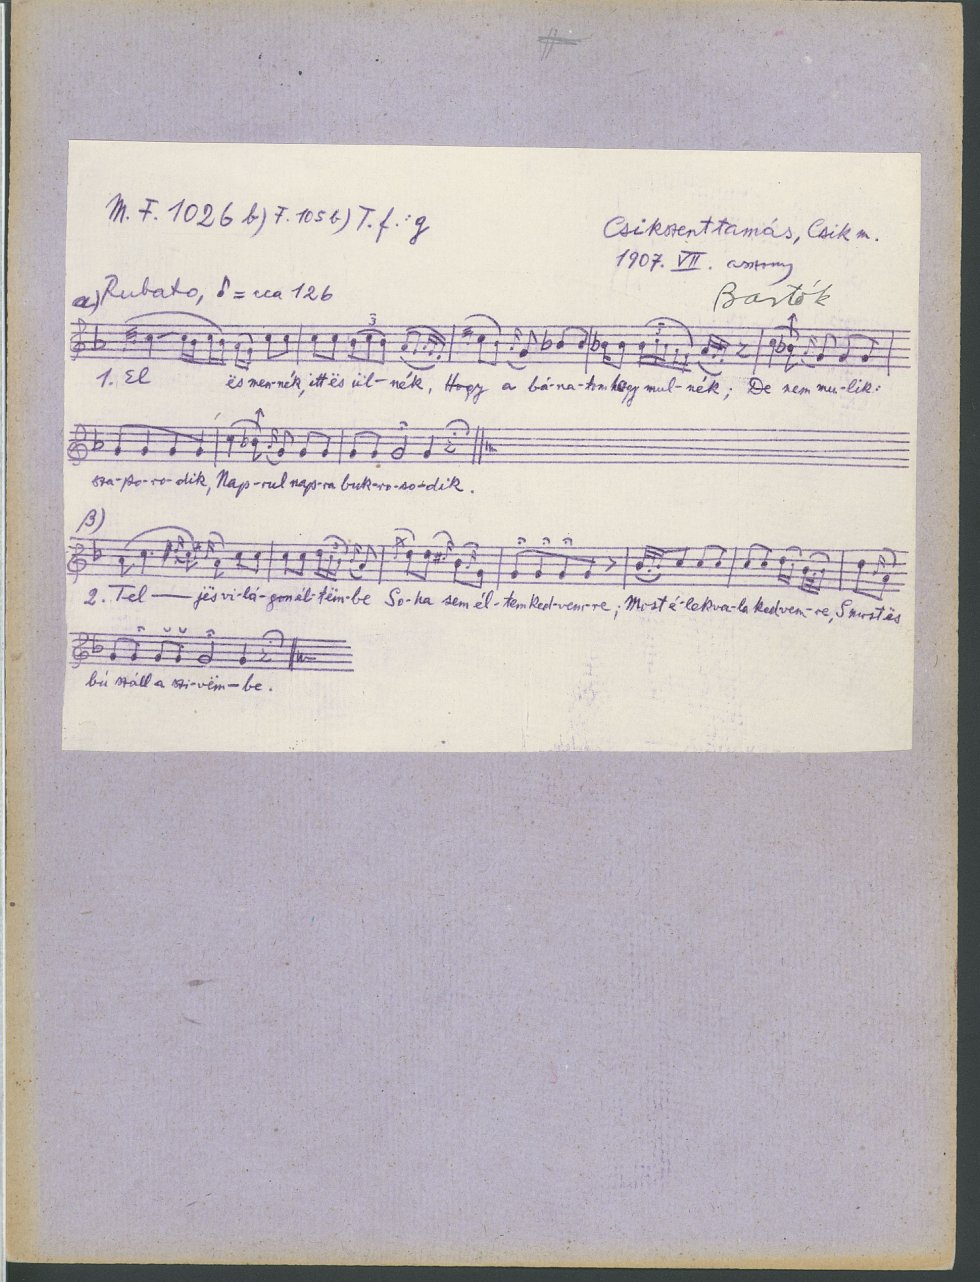 M. F. 1026 b) F. 105 b) T. f.: g
Csikszenttamás, Csik m.
1907. VII. asszony
Bartók
α) Rubato, ♪ = cca 126
3 3
1. El és men-nék, itt és ül-nék, Hogy a bá-na-tim hogy mul-nék; De nem mu-lik:
sza-po-ro-dik, Nap-rul nap-ra buk-ro-so-dik.
β)
2. Tel — jës vi-lá-gon él-tëm-be So-ha sem él-tem ked-vem-re; Most é-lek va-la kedvem-re, S most ës
bú száll a szi-vëm-be.